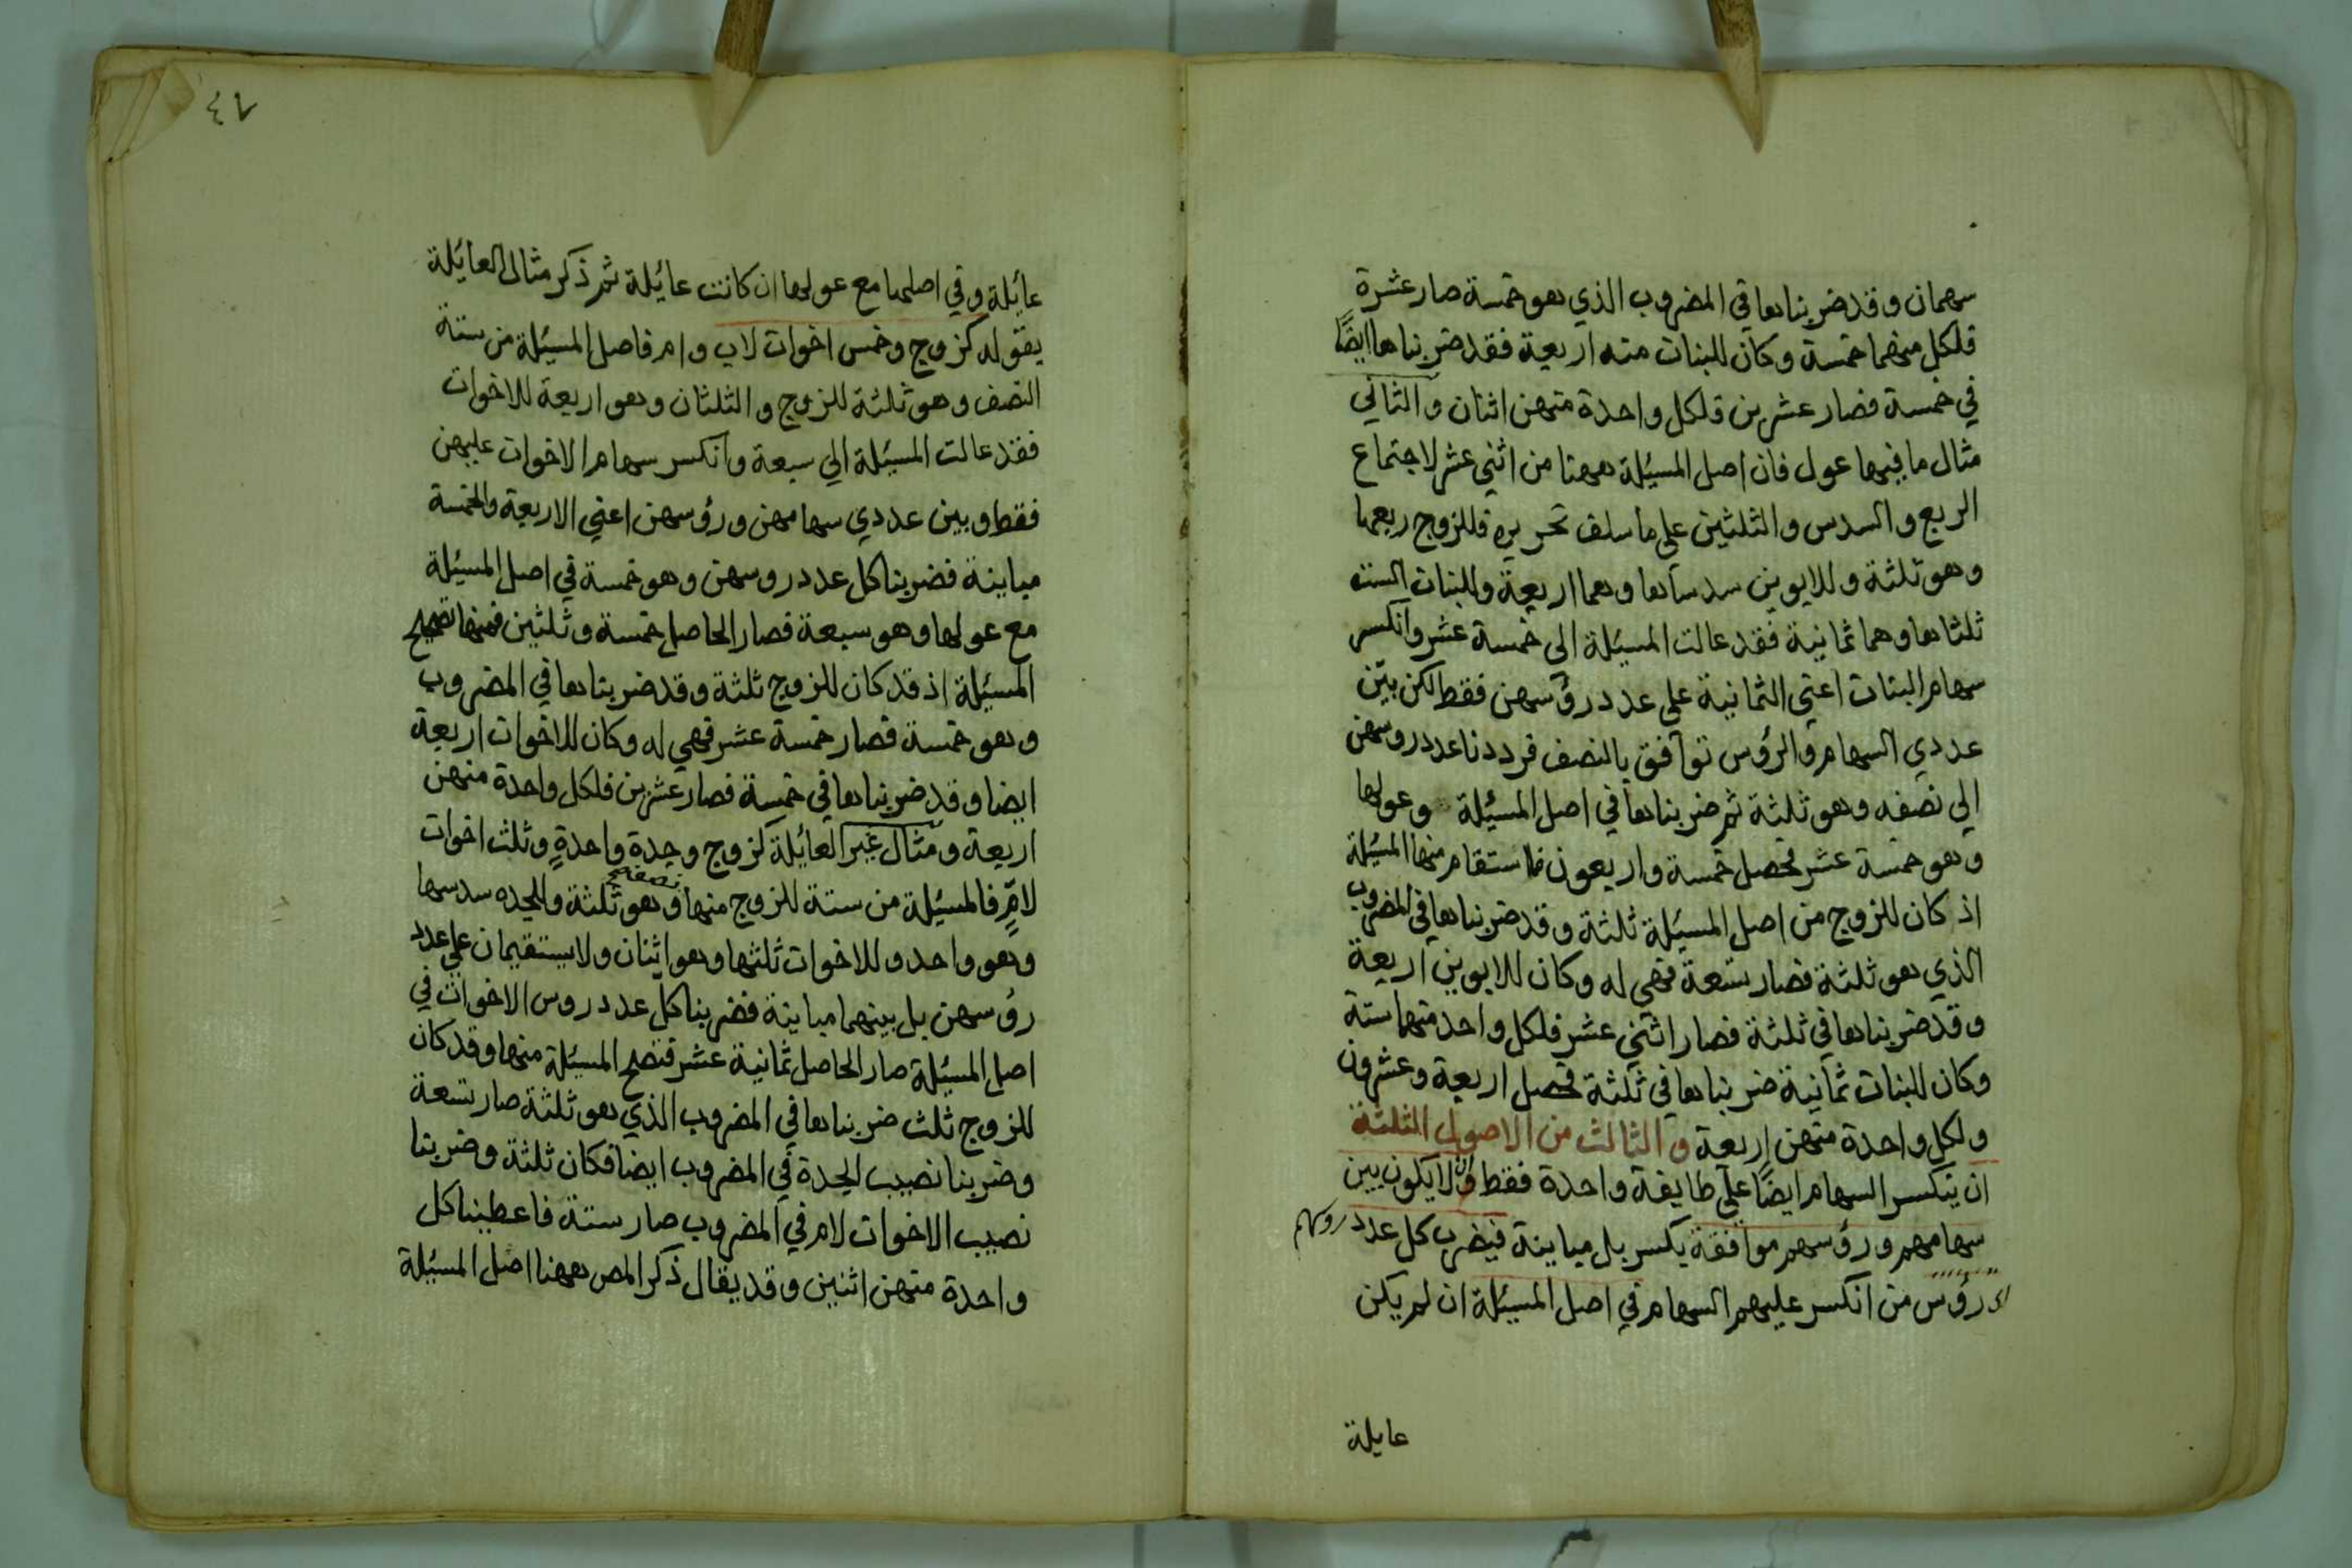 سهمان وقد ضربناها في المضروب الذي هو خمسة صار عشرة
فلكل منهما خمسة وكان للبنات منه اربعة فقد ضربناها ايضًا
في خمسة فصار عشرين فلكل واحدة منهن اثنان والثاني
مثال ما فيها عول فان اصل المسئلة ههنا من اثني عشر لاجتماع
الربع والسدس والثلثين على ما سلف تحريره فللزوج ربعها
وهو ثلثة وللابوين سدساها وهما اربعة وللبنات الست
ثلثاها وهما ثمانية فقد عالت المسئلة الى خمسة عشر وانكسر
سهام البنات اعني الثمانية على عدد رؤسهن فقط لكن بين
عددي السهام والرؤس توافق بالنصف فرددنا عدد روسهن
الي نصفه وهو ثلثة ثم ضربناها في اصل المسئلة وعولها
وهو خمسة عشر فحصل خمسة واربعون فاستقام منها المسئلة
اذ كان للزوج من اصل المسئلة ثلثة وقد ضربناها في المضروب
الذي هو ثلثة فصار تسعة فهي له وكان للابوين اربعة
وقد ضربناها في ثلثة فصار اثني عشر فلكل واحد منهما ستة
وكان للبنات ثمانية ضربناها في ثلثة فحصل اربعة وعشرون
ولكل واحدة منهن اربعة والثالث من الاصول الثلثة
ان ينكسر السهام ايضًا على طايفة واحدة فقط وان لا يكون بين
سهامهم ورؤسهم موافقة بكسر بل مباينة فيضرب كل عدد روسهم
اى رؤس من انكسر عليهم السهام في اصل المسئلة ان لم يكن
عايلة
٤٧
عائلة وفي اصلها مع عولها ان كانت عائلة ثم ذكر مثال العائلة
بقوله كزوج وخمس اخوات لاب وام فاصل المسئلة من ستة
النصف وهو ثلثة للزوج والثلثان وهو اربعة للاخوات
فقد عالت المسئلة الي سبعة وانكسر سهام الاخوات عليهن
فقط وبين عددي سهامهن ورؤسهن اعني الاربعة والخمسة
مباينة فضربنا كل عدد روسهن وهو خمسة في اصل المسئلة
مع عولها وهو سبعة فصار الحاصل خمسة وثلثين فمنها تصح
المسئلة اذ قد كان للزوج ثلثة وقد ضربناها في المضروب
وهو خمسة فصار خمسة عشر فهي له وكان للاخوات اربعة
ايضا وقد ضربناها في خمسة فصار عشرين فلكل واحدة منهن
اربعة ومثال غير العائلة كزوج وجدة واحدةٍ وثلث اخوات
لامٍّ فالمسئلة من ستة للزوج منها نصفها وهو ثلثة وللجده سدسها
وهو واحد وللاخوات ثلثها وهو اثنان ولا يستقيمان على عدد
رؤسهن بل بينهما مباينة فضربنا كل عدد روس الاخوات في
اصل المسئلة صار الحاصل ثمانية عشر فتصح المسئلة منها وقد كان
للزوج ثلث ضربناها في المضروب الذي هو ثلثة صار تسعة
وضربنا نصيب الجدة في المضروب ايضا فكان ثلثة وضربنا
نصيب الاخوات لام في المضروب صار ستة فاعطينا كل
واحدة منهن اثنين وقد يقال ذكر المص ههنا اصل المسئلة